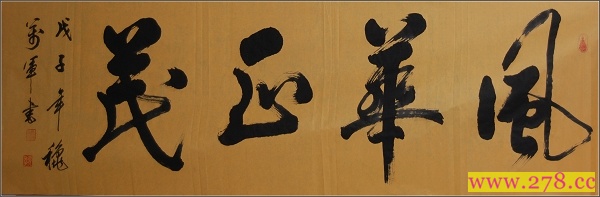 風華正茂
戊子年穐
萬軍書
www.278.cc